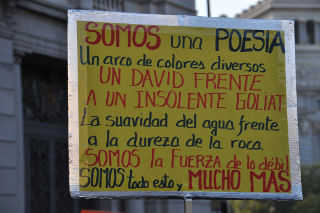 SOMOS una POESIA
Un arco de colores diversos
UN DAVID FRENTE
A UN INSOLENTE GOLIAT
La suavidad del agua frente
a la dureza de la roca
SOMOS la FUERZA de lo débil
SOMOS todo esto y MUCHO MAS